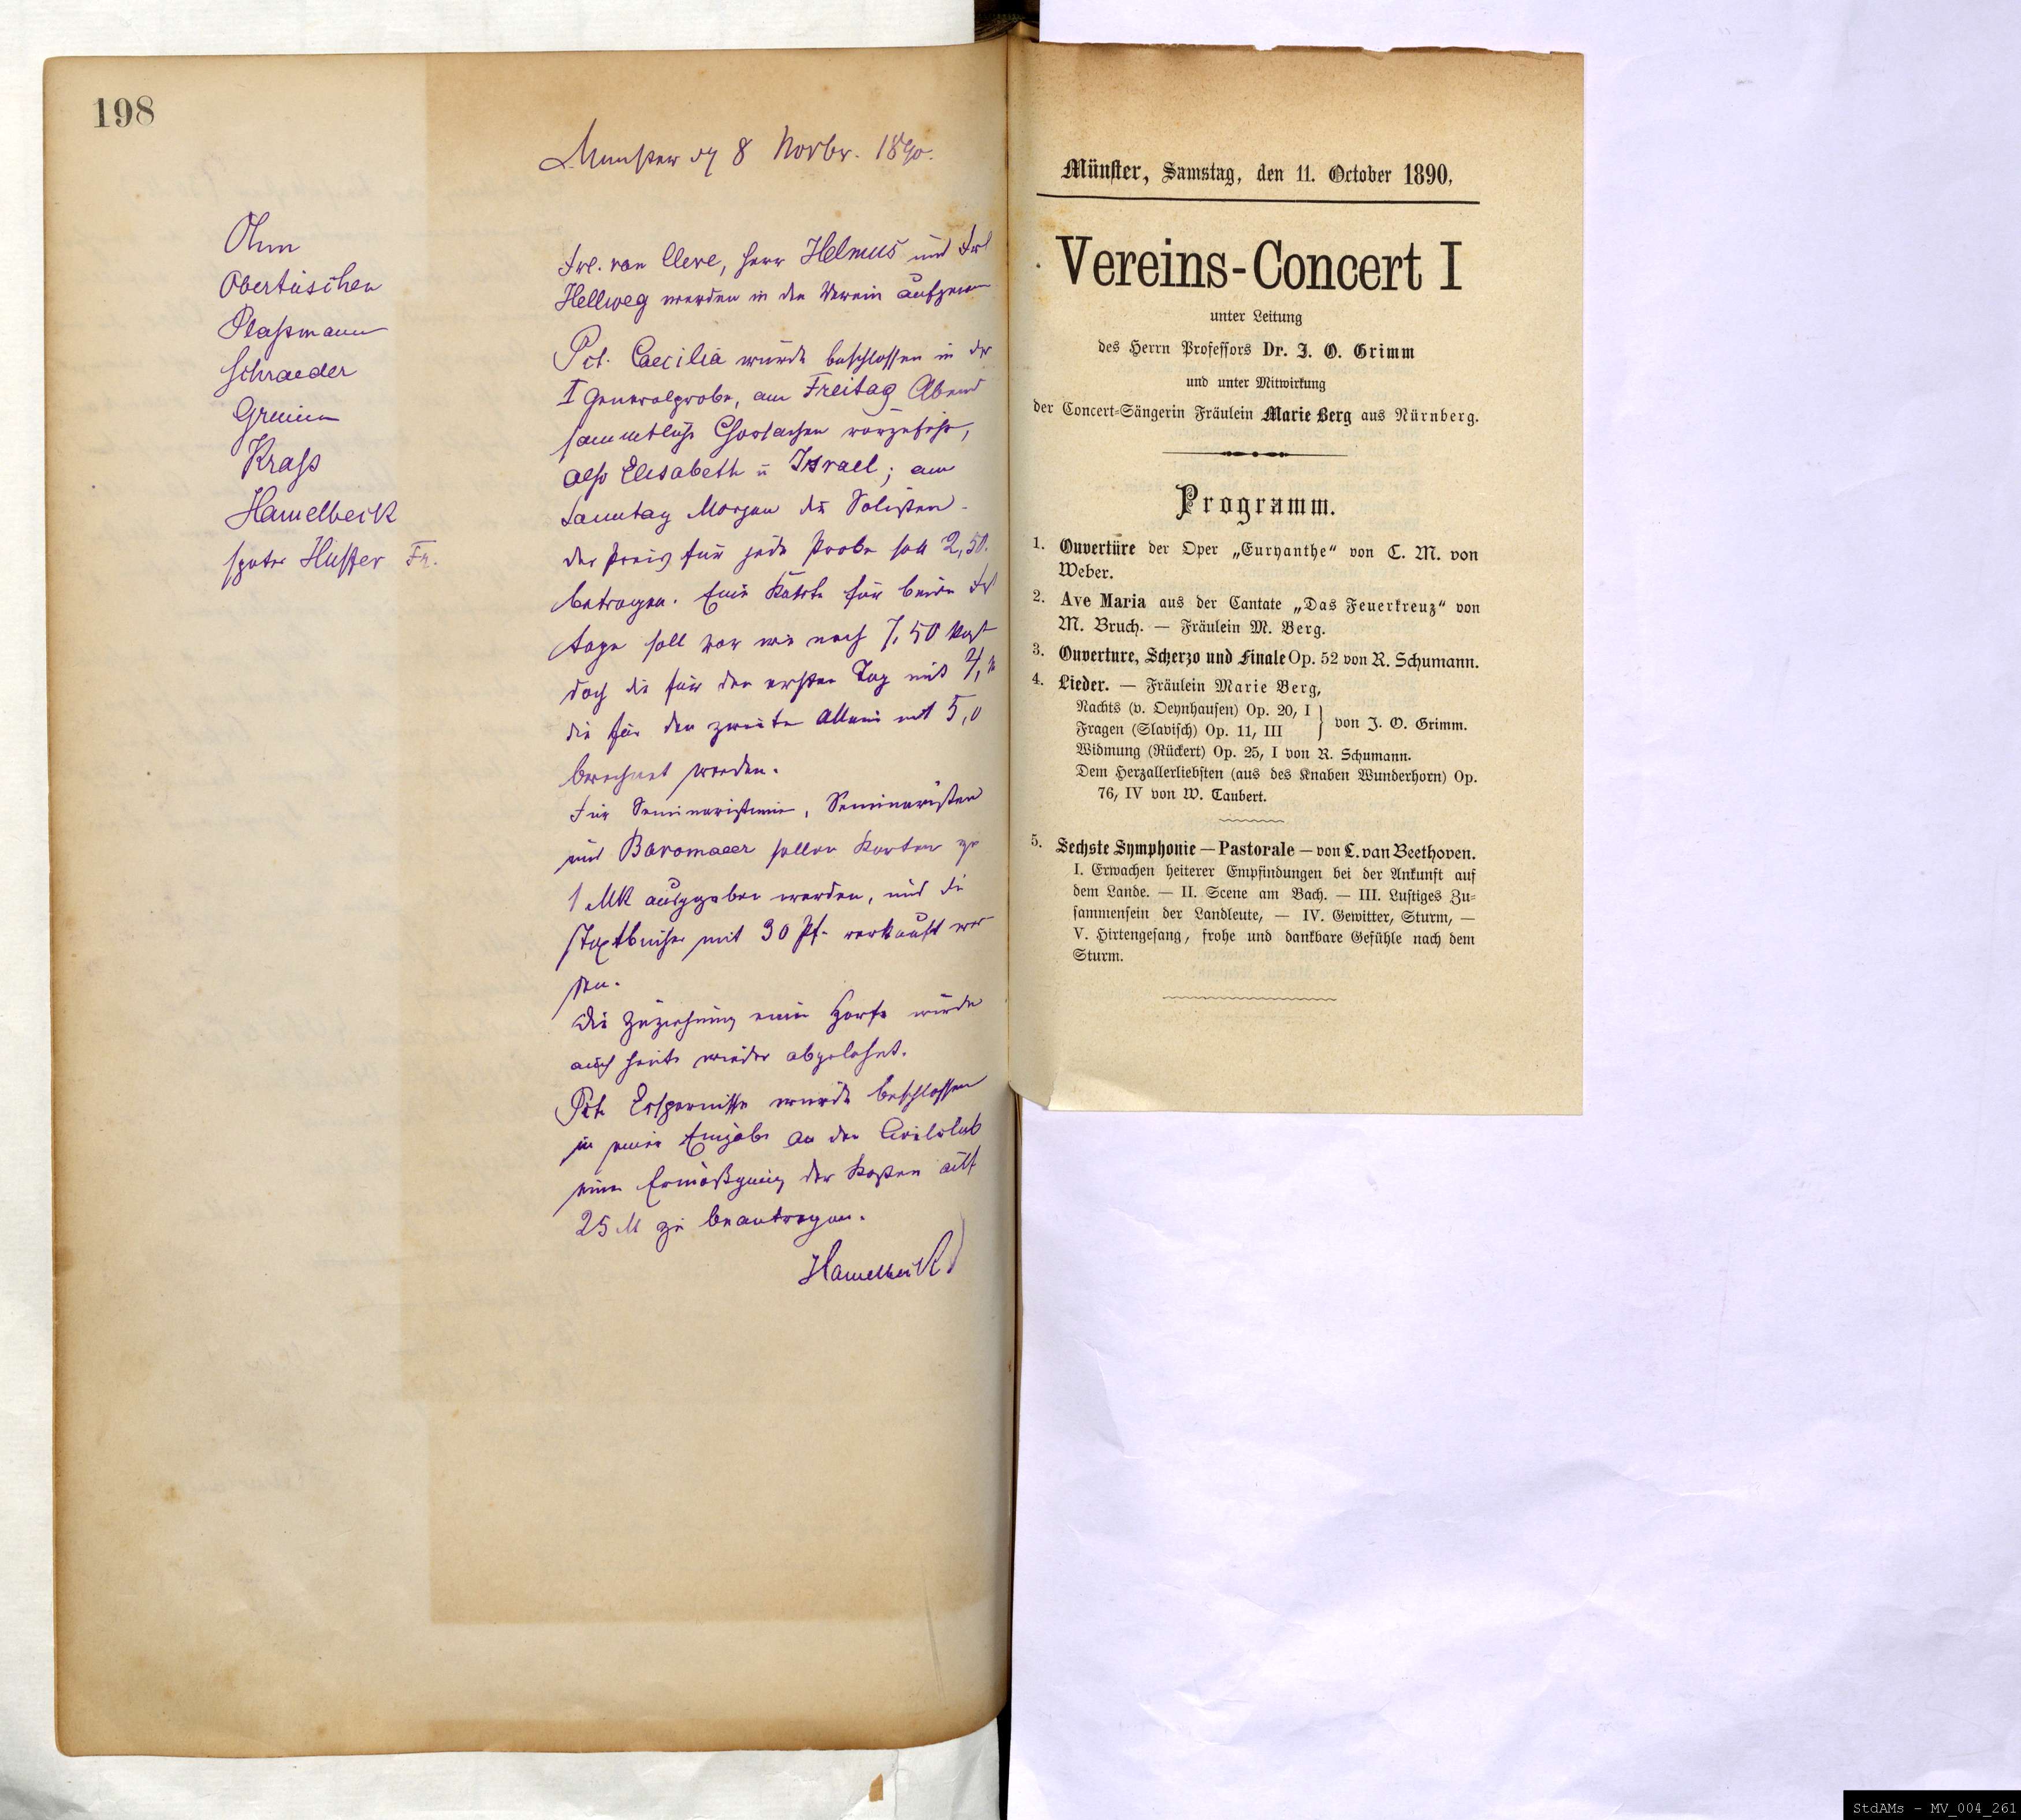 198
Münster d 8 Novbr. 1890.
Ohm
Obertüschen
Plaßmann
Schraeder
Grimm
Kraß
Hamelbeck
später Hüffer Fr.
Frl. van Cleve, Herr Helmus und Frl
Hellweg werden in den Verein aufgenom
Pct. Caecilia wurde beschlossen in der
I Generalprobe, am Freitag Abend
sammtliche Chorsachen vorzuführ,
also Elisabeth u Israel; am
Sonntag Morgen die Solisten.
der Preis für jede Probe soll 2,50.
betragen. Eine Karte für beide Fest
tage soll vor wie nach 7,50 kost
doch die für den ersten Tag mit 4,
die für den zweiten allein mit 5,0
berechnet werden.
Für Seminaristinnen, Seminaristen
und Boromaeer sollen Karten zu
1 Mk ausgegeben werden, und die
Textbücher mit 30 Pf. verkauft wer
den.
Die Zuziehung einer Harfe wurde
auch heute wieder abgelehnt.
Pct. Ersparnisse wurde beschlossen
in einer Eingabe an den Civilclub
eine Ermäßigung der Kosten auf
25 M zu beantragen.
Hamelbeck
Münster, Samstag, den 11. October 1890,
Vereins-Concert I
unter Leitung
des Herrn Professors Dr. J. O. Grimm
und unter Mitwirkung
der Concert-Sängerin Fräulein Marie Berg aus Nürnberg.
Programm.
1. Ouvertüre der Oper „Euryanthe“ von C. M. von
Weber.
2. Ave Maria aus der Cantate „Das Feuerkreuz“ von
M. Bruch. — Fräulein M. Berg.
3. Ouverture, Scherzo und Finale Op. 52 von R. Schumann.
4. Lieder. — Fräulein Marie Berg,
Nachts (v. Oeynhausen) Op. 20, I
Fragen (Slavisch) Op. 11, III } von J. O. Grimm.
Widmung (Rückert) Op. 25, I von R. Schumann.
Dem Herzallerliebsten (aus des Knaben Wunderhorn) Op.
76, IV von W. Taubert.
5. Sechste Symphonie — Pastorale — von L. van Beethoven.
I. Erwachen heiterer Empfindungen bei der Ankunft auf
dem Lande. — II. Scene am Bach. — III. Lustiges Zu-
sammensein der Landleute, — IV. Gewitter, Sturm, —
V. Hirtengesang, frohe und dankbare Gefühle nach dem
Sturm.
StdAMs - MV_004_261